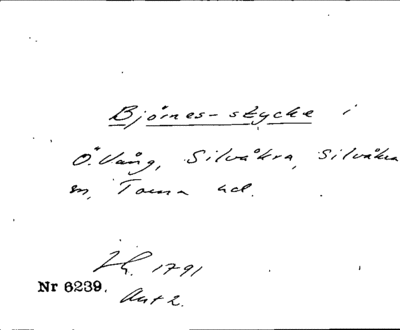 Björnes-stycke i
Ö. Vång, Silvåkra, Silvåkra
sn, Torna hd.
Jh. 1791
Nr 6239.
Akt 2.